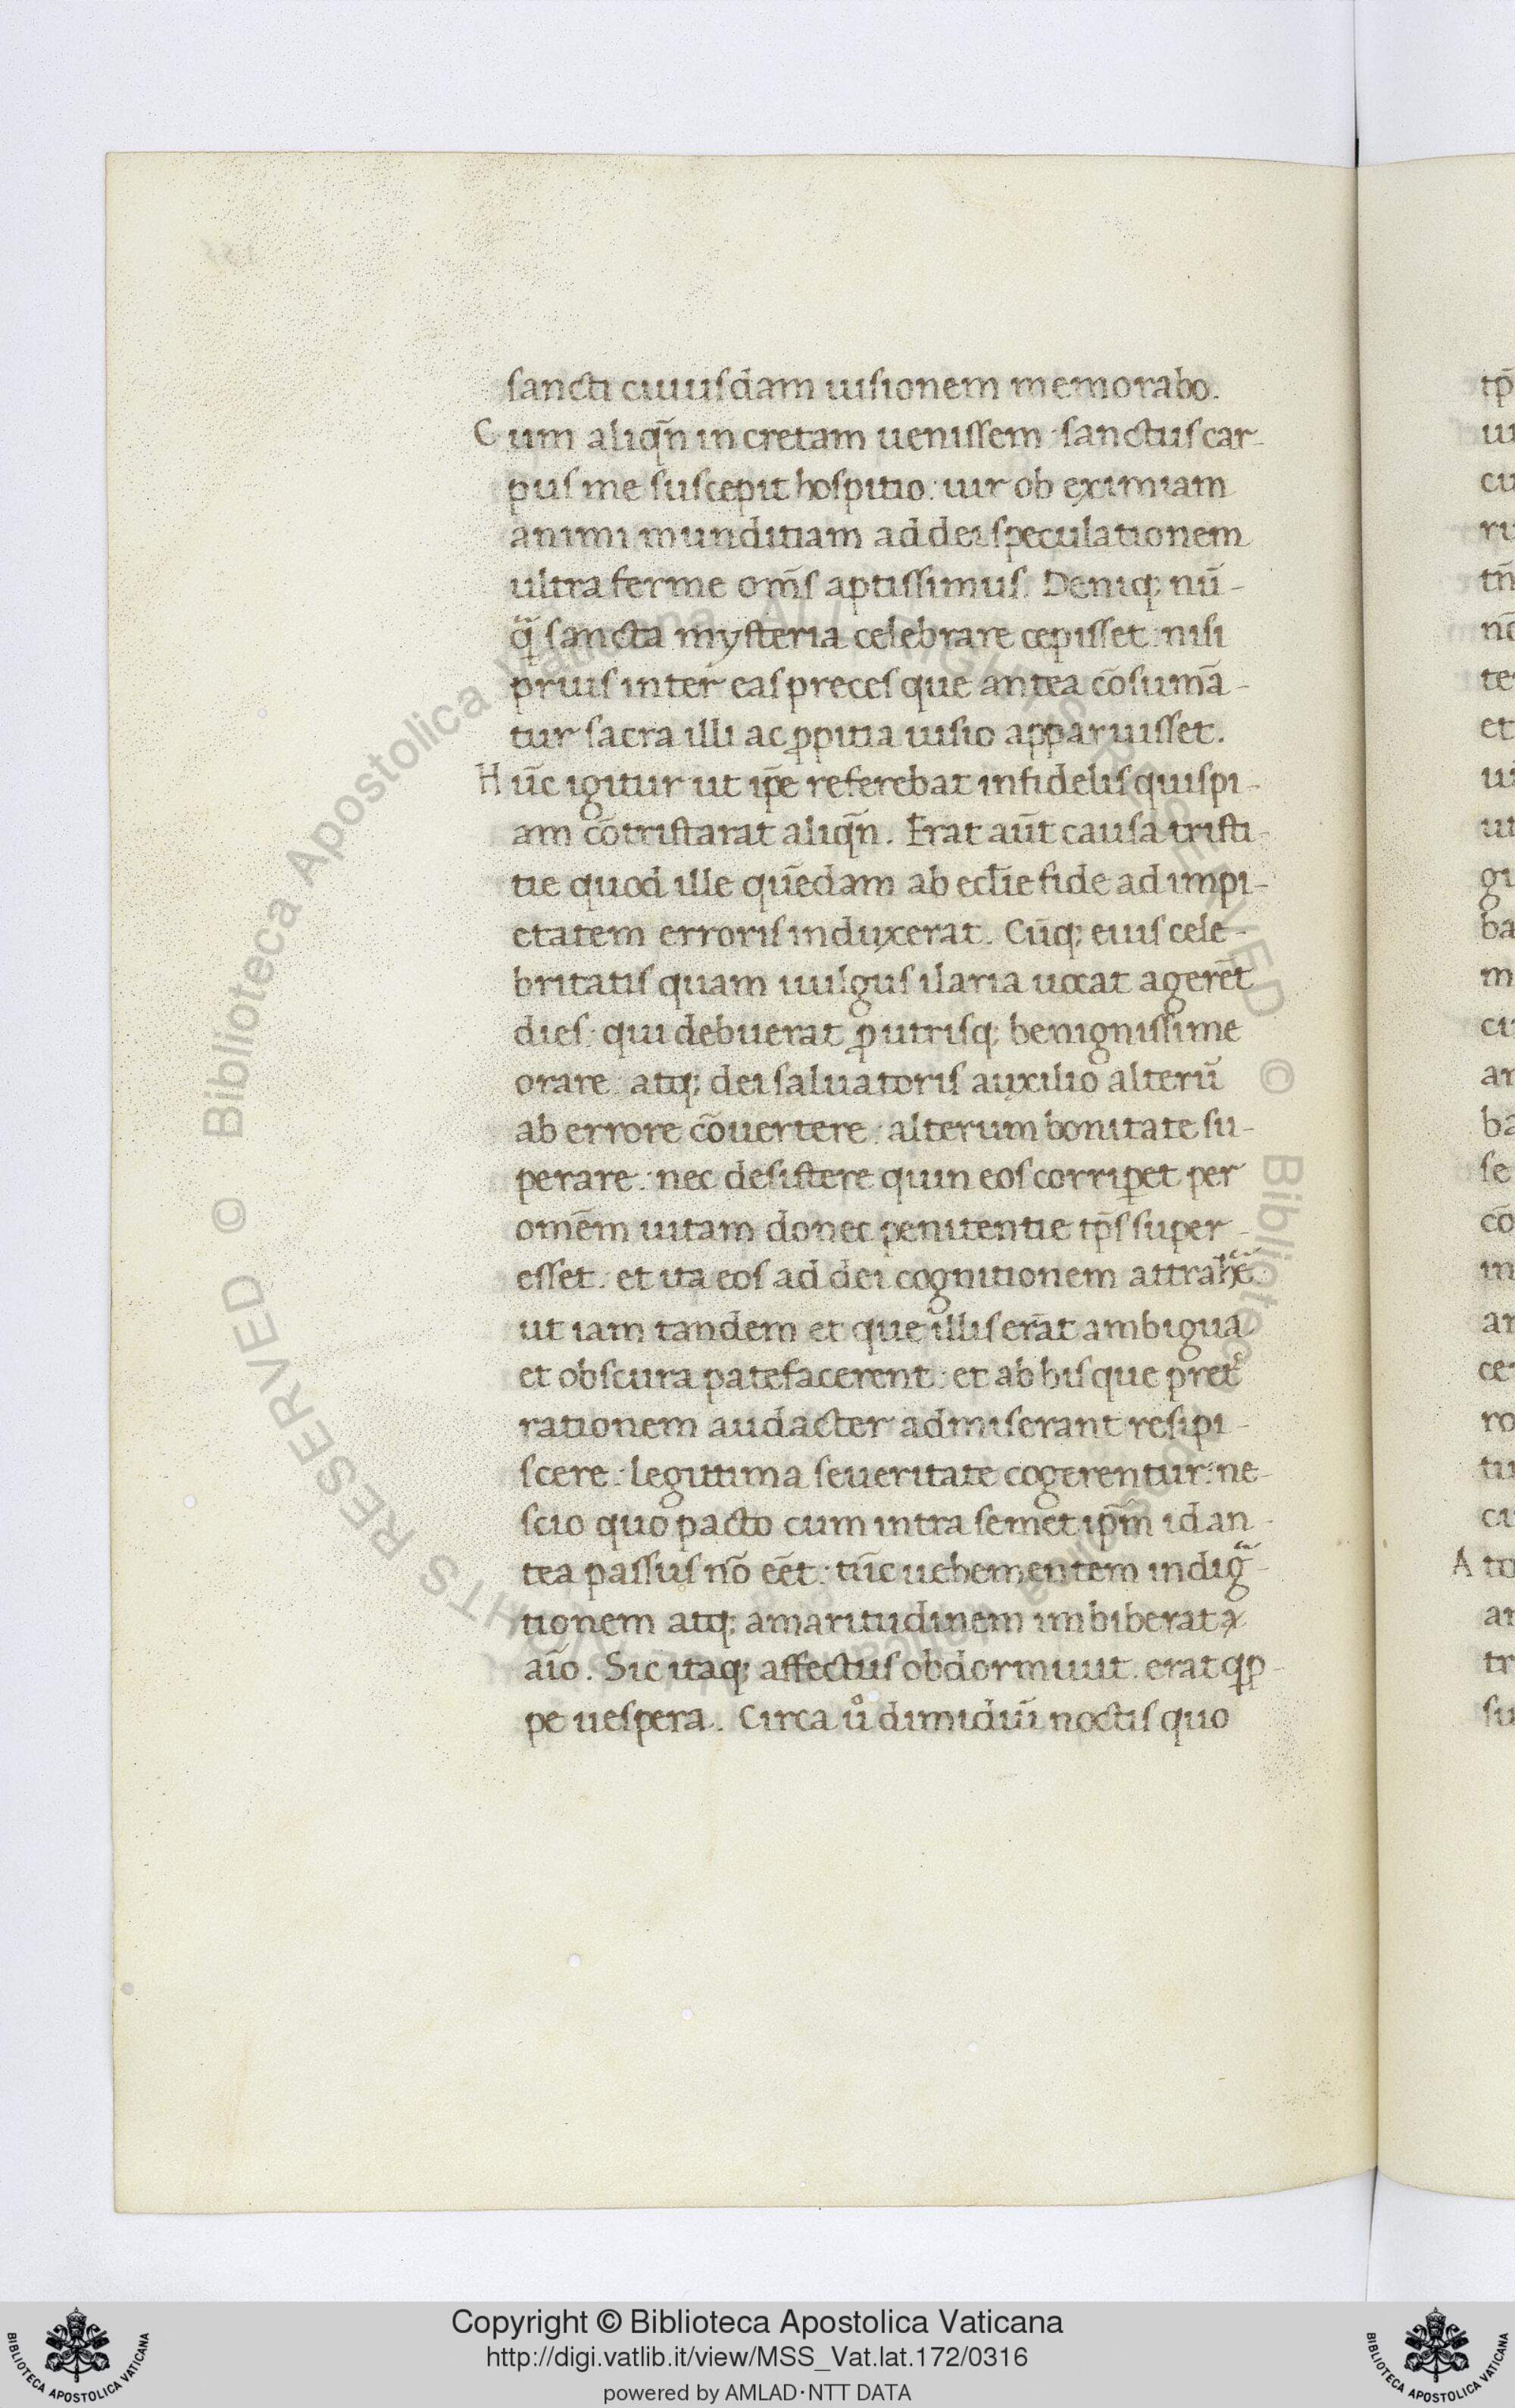 sancti cuiusdam uisionem memorabo.
Cum aliqñ in cretam uenissem sanctus car-
pus me suscepit hospitio: uir ob eximiam
animi munditiam ad dei speculationem
ultra ferme om̄s aptissimus. Deniq; nū-
q̃ sancta mysteria celebrare cepisset: nisi
prius inter eas preces que antea cōsumā-
tur sacra illi ac ꝓpitia uisio apparuisset.
Hūc igitur ut ip̄e referebat infidelis quispi-
am cōtristarat aliqñ. Erat aūt causa tristi-
tie quod ille quēdam ab eccl̄ie fide ad impi-
etatem erroris induxerat. Cūq; eius cele-
britatis quam uulgus ilaria uocat agerēt
dies: qui debuerat ꝓ utrisq; benignissime
orare: atq; dei saluatoris auxilio alterū
ab errore cōuertere: alterum bonitate su-
perare: nec desistere quin eos corriꝑet per
omēm uitam donec penitentie tp̄s super-
esset: et ita eos ad dei cognitionem attrahē
ut iam tandem et que illis erāt ambigua
et obscura patefacerent: et ab his que pret
rationem audacter admiserant resipi-
scere: legittima seueritate cogerentur: ne-
scio quo pacto cum intra semet ip̄m id an-
tea passus nō eēt: tūc uehementem indig̃-
tionem atq; amaritudinem imbiberat
aīo. Sic itaq; affectus obdormiuit. erat qꝑ-
pe uespera. Circa ů dimidiū noctis quo
tp̄
cu
tñ
nō
te
et
ut
gi
ba
m
ba
se
cō
in
ar
ce
ro
tu
A to
ar
tr
su
Biblioteca Apostolica Vaticana ALL RIGHTS RESERVED © Biblioteca Apostolica Vaticana ALL RIGHTS RESERVED ©
Copyright © Biblioteca Apostolica Vaticana
http://digi.vatlib.it/view/MSS_Vat.lat.172/0316
powered by AMLAD·NTT DATA
BIBLIOTECA APOSTOLICA VATICANA
BIBLIOTECA APOSTOLICA VATICANA